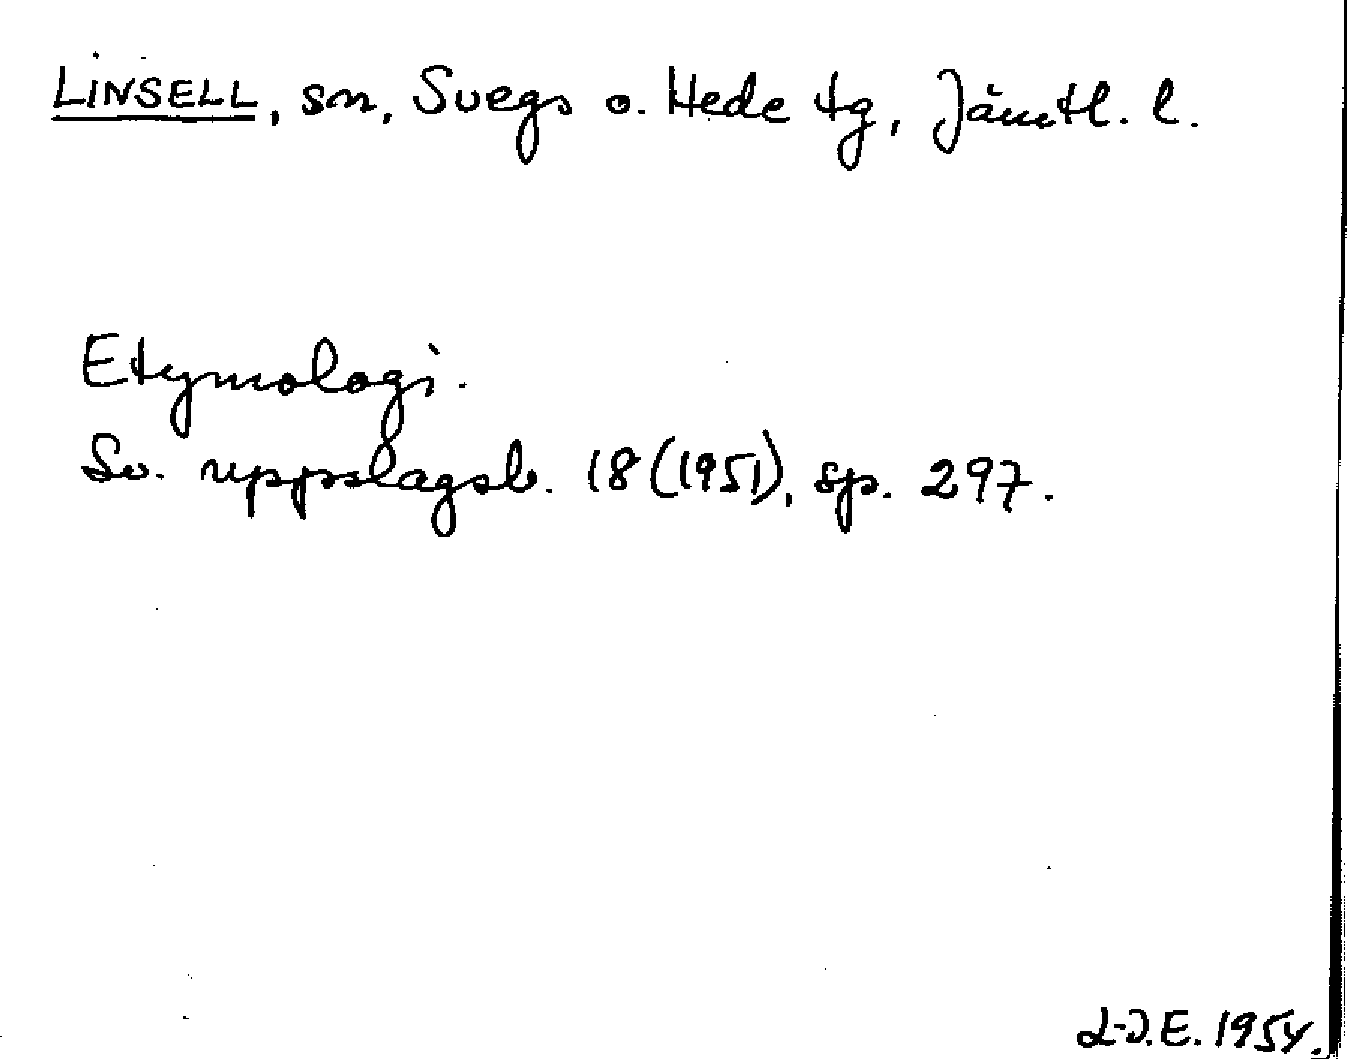 LINSELL, sn, Svegs o. Hede tg, Jämtl. l.
Etymologi.
Sv. uppslagsb. 18 (1951), sp. 297.
L-J.E. 1954.